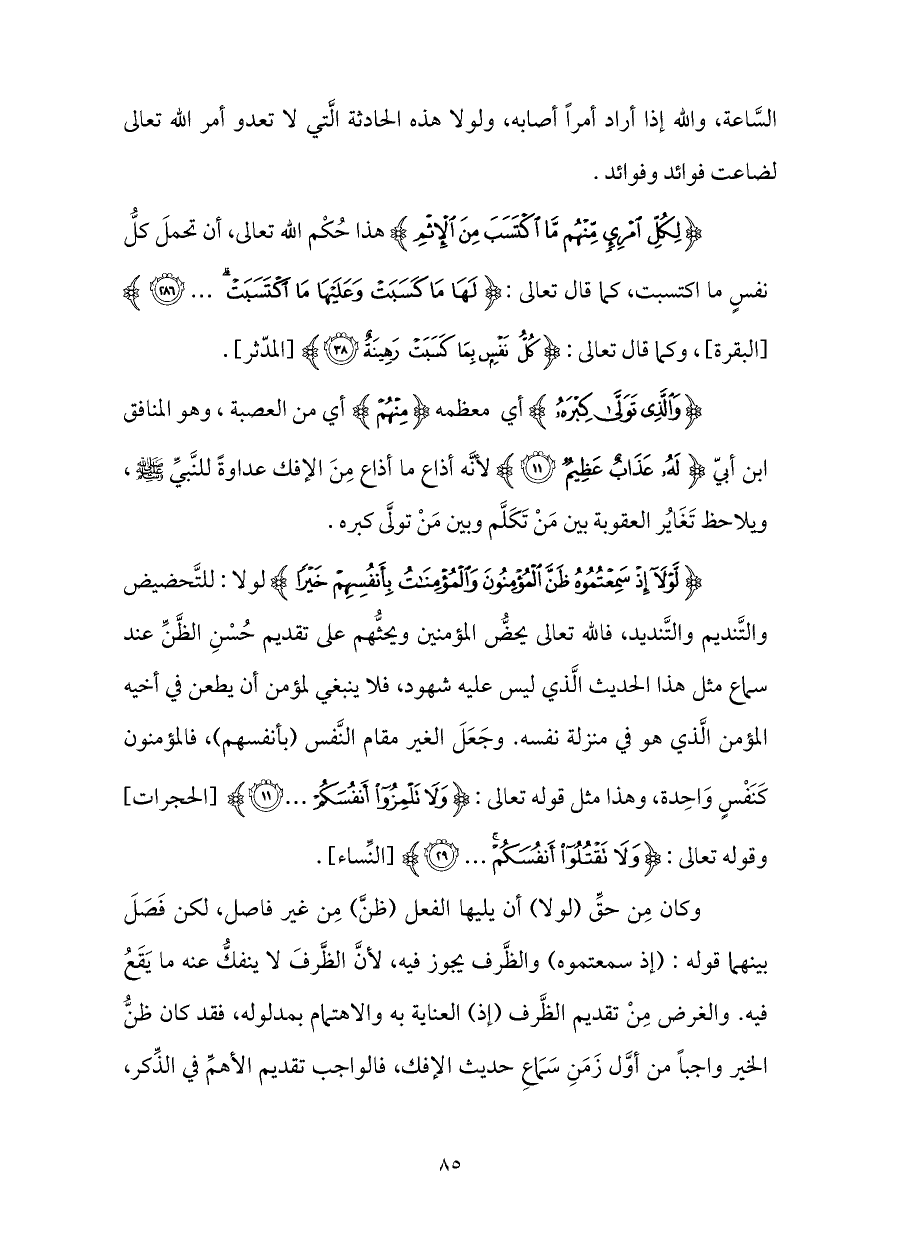 السَّاعة، والله إذا أراد أمراً أصابه، ولولا هذه الحادثة الَّتي لا تعدو أمر الله تعالى
لضاعت فوائد وفوائد .
﴿لِكُلِّ ٱمْرِيٍٕ مِّنْهُم مَّا ٱكْتَسَبَ مِنَ ٱلْإِثْمِ ﴾ هذا حُكْم الله تعالى، أن تحملَ كلُّ
نفسٍ ما اكتسبت، كما قال تعالى : ﴿ لَهَا مَا كَسَبَتْ وَعَلَيْهَا مَا ٱكْتَسَبَتْ ۗ ... ۝٢٨٦ ﴾
[البقرة] ، وكما قال تعالى : ﴿ كُلُّ نَفْسٍۭ بِمَا كَسَبَتْ رَهِينَةٌ ۝٣٨ ﴾ [المدّثر] .
﴿ وَٱلَّذِى تَوَلَّىٰ كِبْرَهُۥ ﴾ أي معظمه ﴿ مِنْهُمْ ﴾ أي من العصبة ، وهو المنافق
ابن أبيّ ﴿ لَهُۥ عَذَابٌ عَظِيمٌ ۝١١ ﴾ لأنَّه أذاع ما أذاع مِنَ الإفك عداوةً للنَّبيِّ ﷺ ،
ويلاحظ تَغَايُر العقوبة بين مَنْ تَكَلَّم وبين مَنْ تولَّى كبره .
﴿ لَّوْلَآ إِذْ سَمِعْتُمُوهُ ظَنَّ ٱلْمُؤْمِنُونَ وَٱلْمُؤْمِنَٰتُ بِأَنفُسِهِمْ خَيْرًا ﴾ لولا : للتَّحضيض
والتَّنديم والتَّنديد، فالله تعالى يحضُّ المؤمنين ويحثُّهم على تقديم حُسْنِ الظَّنِّ عند
سماع مثل هذا الحديث الَّذي ليس عليه شهود، فلا ينبغي لمؤمن أن يطعن في أخيه
المؤمن الَّذي هو في منزلة نفسه. وجَعَلَ الغير مقام النَّفس (بأنفسهم)، فالمؤمنون
كَنَفْسٍ وَاحِدة، وهذا مثل قوله تعالى : ﴿ وَلَا تَلْمِزُوٓا۟ أَنفُسَكُمْ ... ۝١١ ﴾ [الحجرات]
وقوله تعالى : ﴿ وَلَا تَقْتُلُوٓا۟ أَنفُسَكُمْ ۚ ... ۝٢٩ ﴾ [النِّساء] .
وكان مِن حقِّ (لولا) أن يليها الفعل (ظنَّ) مِن غير فاصل، لكن فَصَلَ
بينهما قوله : (إذ سمعتموه) والظَّرف يجوز فيه، لأنَّ الظَّرفَ لا ينفكُّ عنه ما يَقَعُ
فيه. والغرض مِنْ تقديم الظَّرف (إذ) العناية به والاهتمام بمدلوله، فقد كان ظنُّ
الخير واجباً من أوَّل زَمَنِ سَمَاعِ حديث الإفك، فالواجب تقديم الأهمِّ في الذِّكر،
٨٥